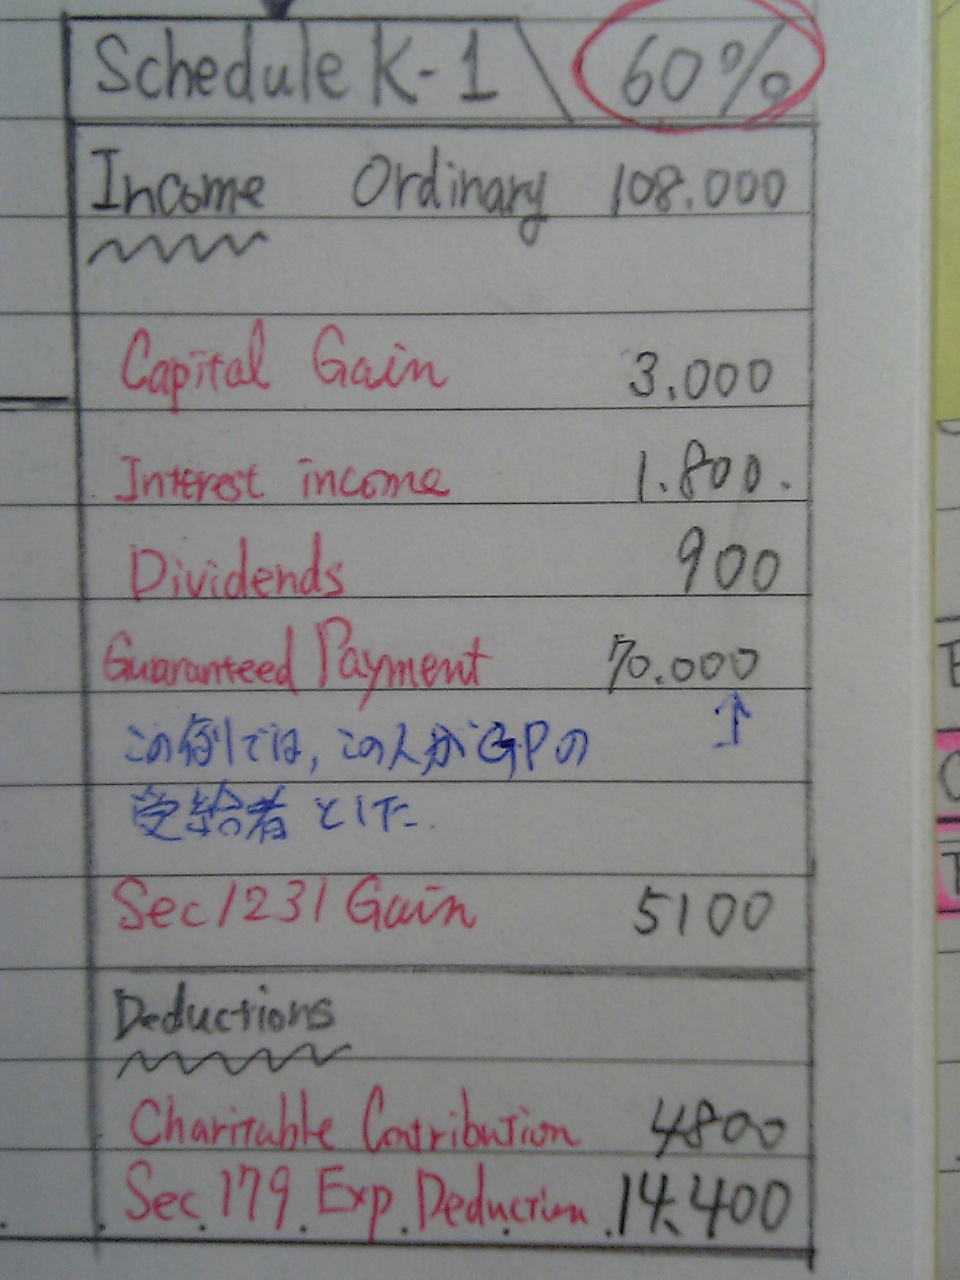 Schedule K-1 60%
Income Ordinary 108.000
Capital Gain 3.000
Interest income 1.800.
Dividends 900
Guaranteed Payment 70.000
この例では,この人がGPの ↑
受給者とした.
Sec 1231 Gain 5100
Deductions
Charitable Contribution 4800
Sec.179.Exp.Deduction.14.400